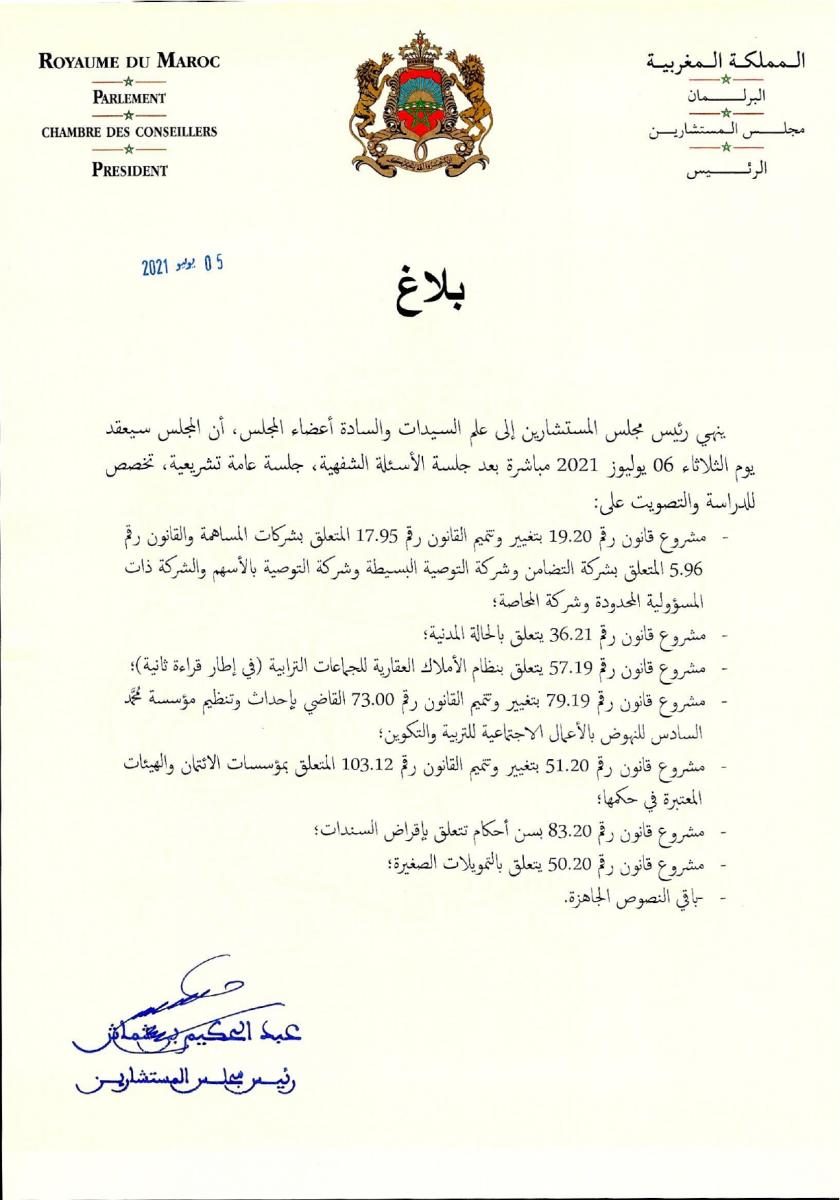 ROYAUME DU MAROC
PARLEMENT
CHAMBRE DES CONSEILLERS
PRESIDENT
المملكة المغربية
البرلمان
مجلس المستشارين
الرئيس
05 يوليو 2021
بلاغ
ينهي رئيس مجلس المستشارين إلى علم السيدات والسادة أعضاء المجلس، أن المجلس سيعقد
يوم الثلاثاء 06 يوليوز 2021 مباشرة بعد جلسة الأسئلة الشفهية، جلسة عامة تشريعية، تخصص
للدراسة والتصويت على:
- مشروع قانون رقم 19.20 بتغيير وتتميم القانون رقم 17.95 المتعلق بشركات المساهمة والقانون رقم
5.96 المتعلق بشركة التضامن وشركة التوصية البسيطة وشركة التوصية بالأسهم والشركة ذات
المسؤولية المحدودة وشركة المحاصة؛
- مشروع قانون رقم 36.21 يتعلق بالحالة المدنية؛
- مشروع قانون رقم 57.19 يتعلق بنظام الأملاك العقارية للجماعات الترابية (في إطار قراءة ثانية)؛
- مشروع قانون رقم 79.19 بتغيير وتتميم القانون رقم 73.00 القاضي بإحداث وتنظيم مؤسسة محمد
السادس للنهوض بالأعمال الاجتماعية للتربية والتكوين؛
- مشروع قانون رقم 51.20 بتغيير وتتميم القانون رقم 103.12 المتعلق بمؤسسات الائتمان والهيئات
المعتبرة في حكمها؛
- مشروع قانون رقم 83.20 بسن أحكام تتعلق بإقراض السندات؛
- مشروع قانون رقم 50.20 يتعلق بالتمويلات الصغيرة؛
- -باقي النصوص الجاهزة.
عبد الحكيم بن شماش
رئيس مجلس المستشارين